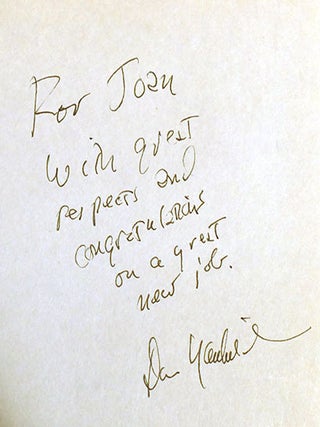 For Joan
With great
respects and
congratulations
on a great
new job.
Dan